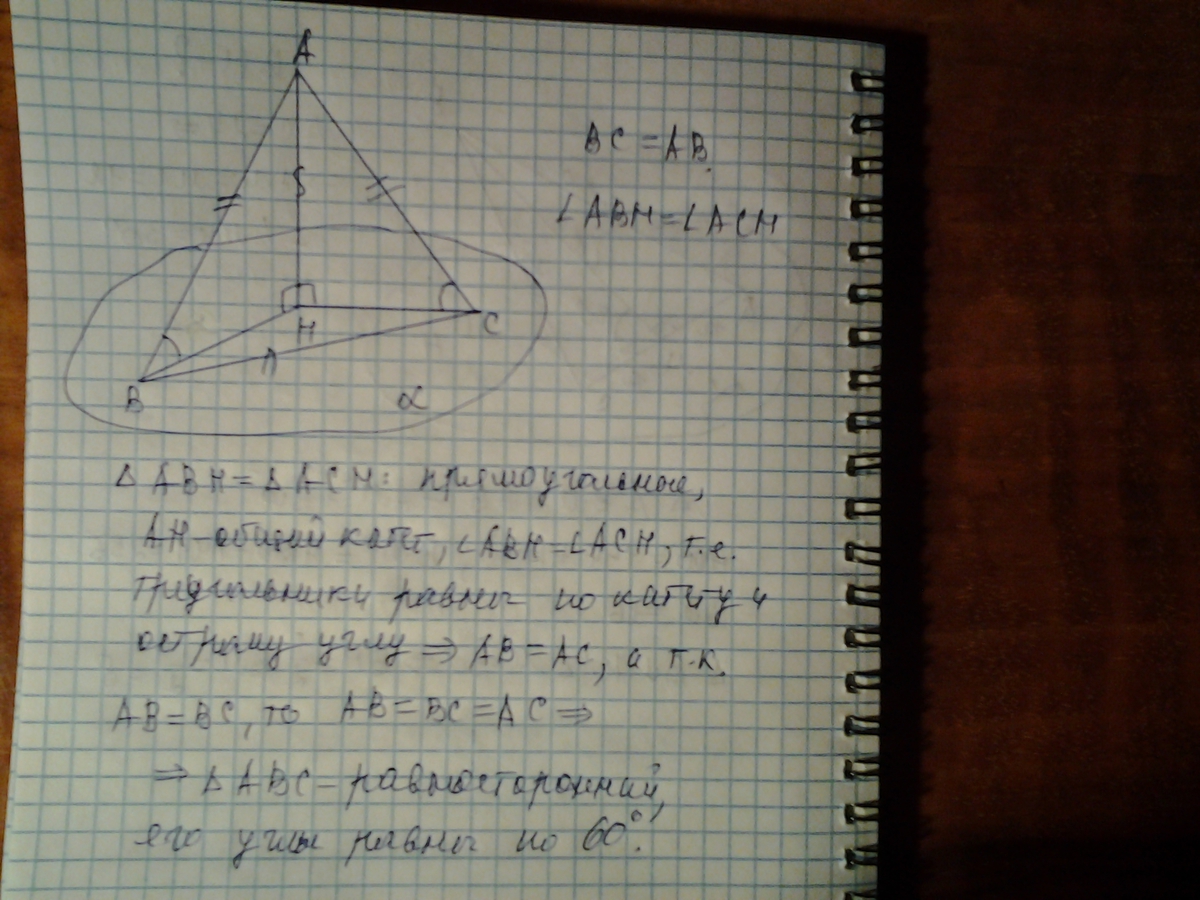 A
BC = AB.
∠ABH = ∠ACH
H
C
B
α
Δ ABH = Δ ACH: прямоугольные,
AH - общий катет, ∠ABH = ∠ACH, т.е.
треугольники равны по катету и
острому углу ⇒ AB = AC, а т.к.
AB = BC, то AB = BC = AC ⇒
⇒ Δ ABC - равносторонний,
его углы равны по 60°.